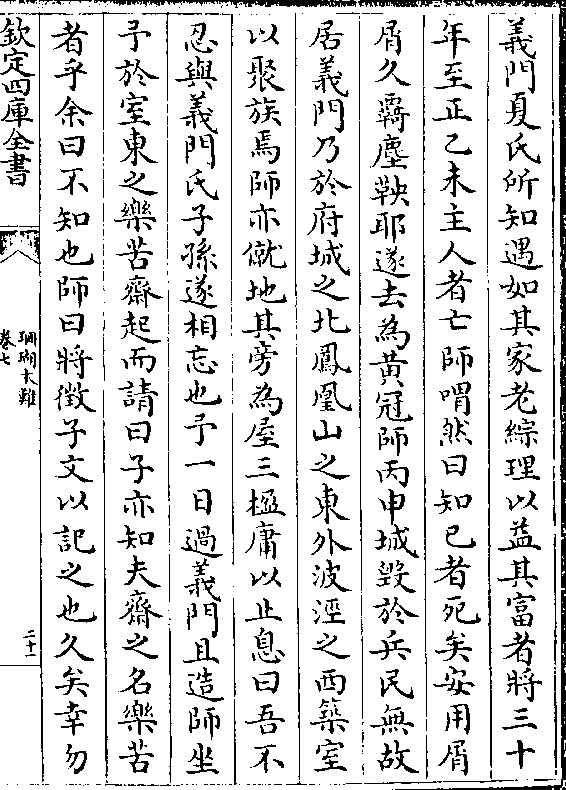 義門夏氏所知遇如其家老綜理以益其富者將三十
年至正乙未主人者亡師喟然曰知已者死矣安用屑
屑久羇塵鞅耶遂去為黄冠師丙申城毀於兵民無故
居義門乃於府城之北鳳凰山之東外波涇之西築室
以聚族焉師亦僦地其旁為屋三楹庸以止息曰吾不
忍與義門氏子孫遂相忘也予一日過義門且造師坐
予於室東之樂苦齋起而請曰子亦知夫齋之名樂苦
者乎余曰不知也師曰將徴子文以記之也久矣幸勿
欽定四庫全書
珊瑚木難
卷七
二十